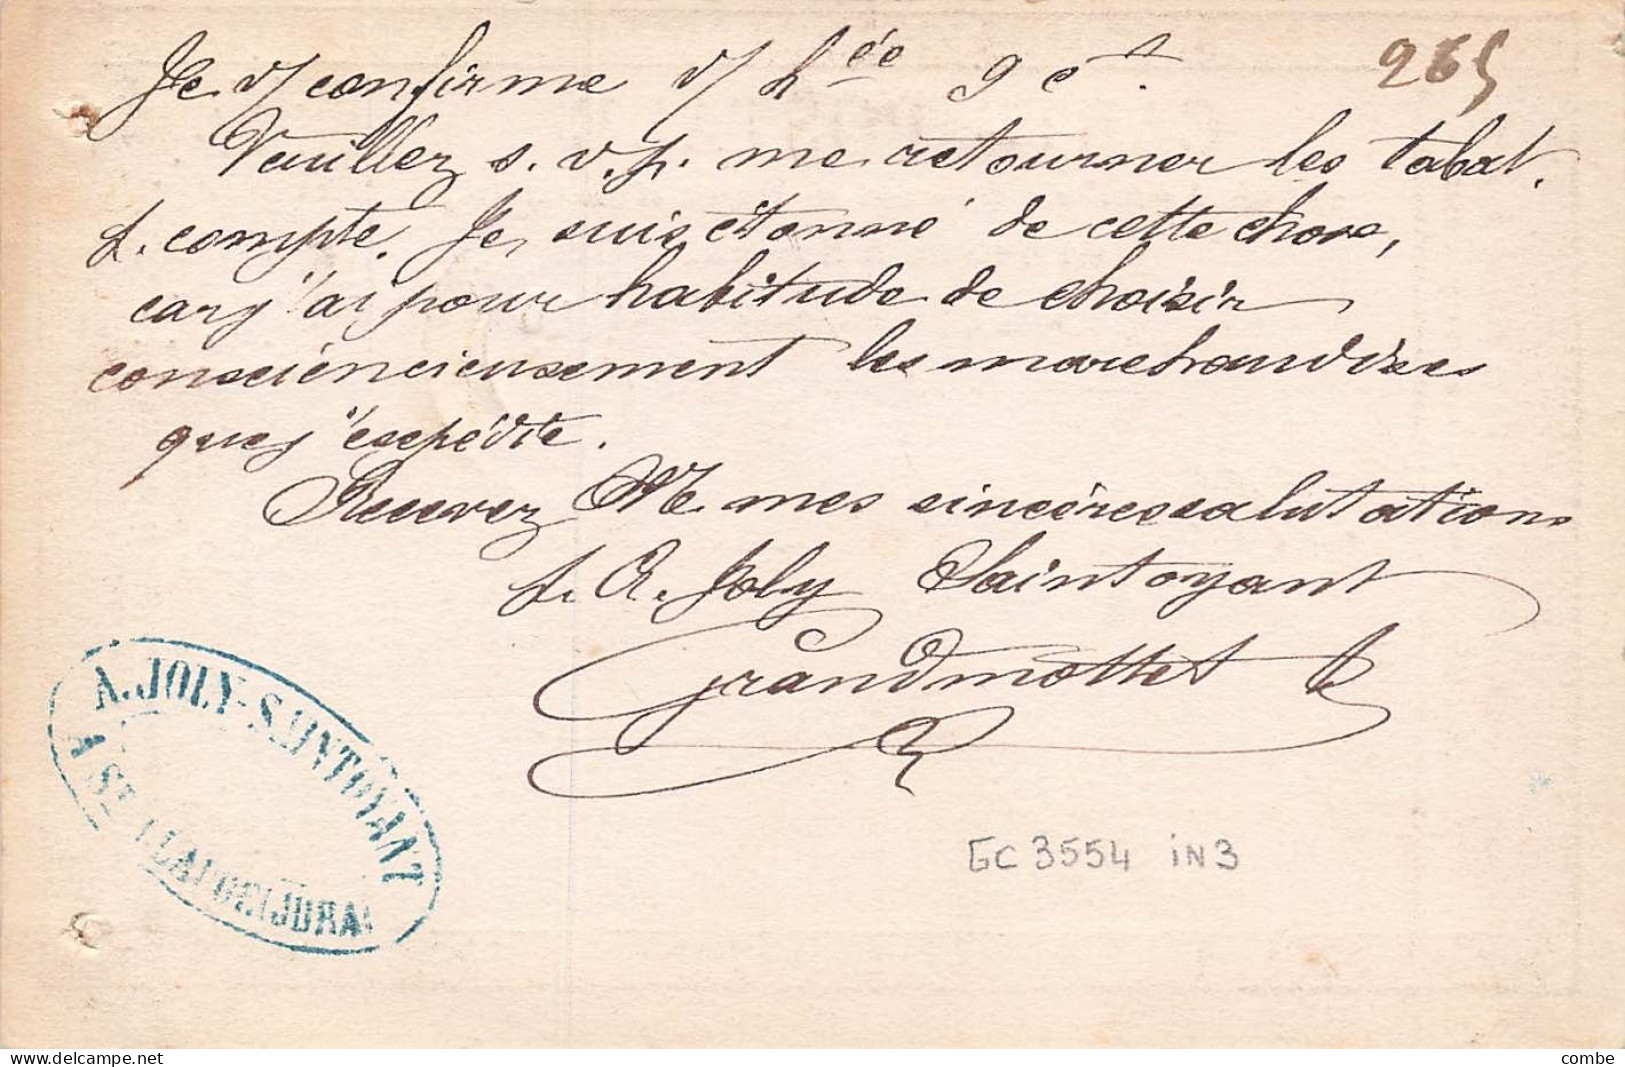 265
Je v/ confirme v/ h ée 9 ct.
Veuillez s. v. p. me retourner les tabat.
p. compte. Je suis étonné de cette chose,
car j'ai pour habitude de choisir
consciencieusement les marchandises
que j'expédie.
Recevez Mr mes sincères salutations
p. A. Joly Saintoyant
Grandmottet
A. JOLY-SAINTOYANT
A ST CLAUDE (JURA)
GC 3554 iN3
combe
https://www.delcampe.net